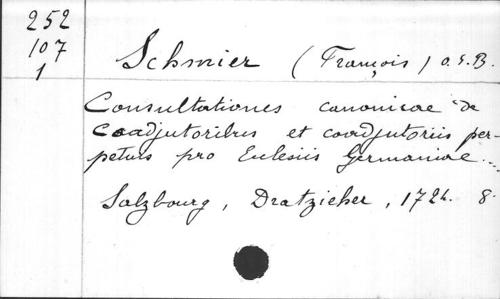 252
107
1
Schmier (François) O.S.B.
Consultationes canonicae de
Coadjutoribus et coadjutoriis per-
petuis pro Eclesiis Germaniae...
Salzbourg, Dratzieher, 1724. 8.